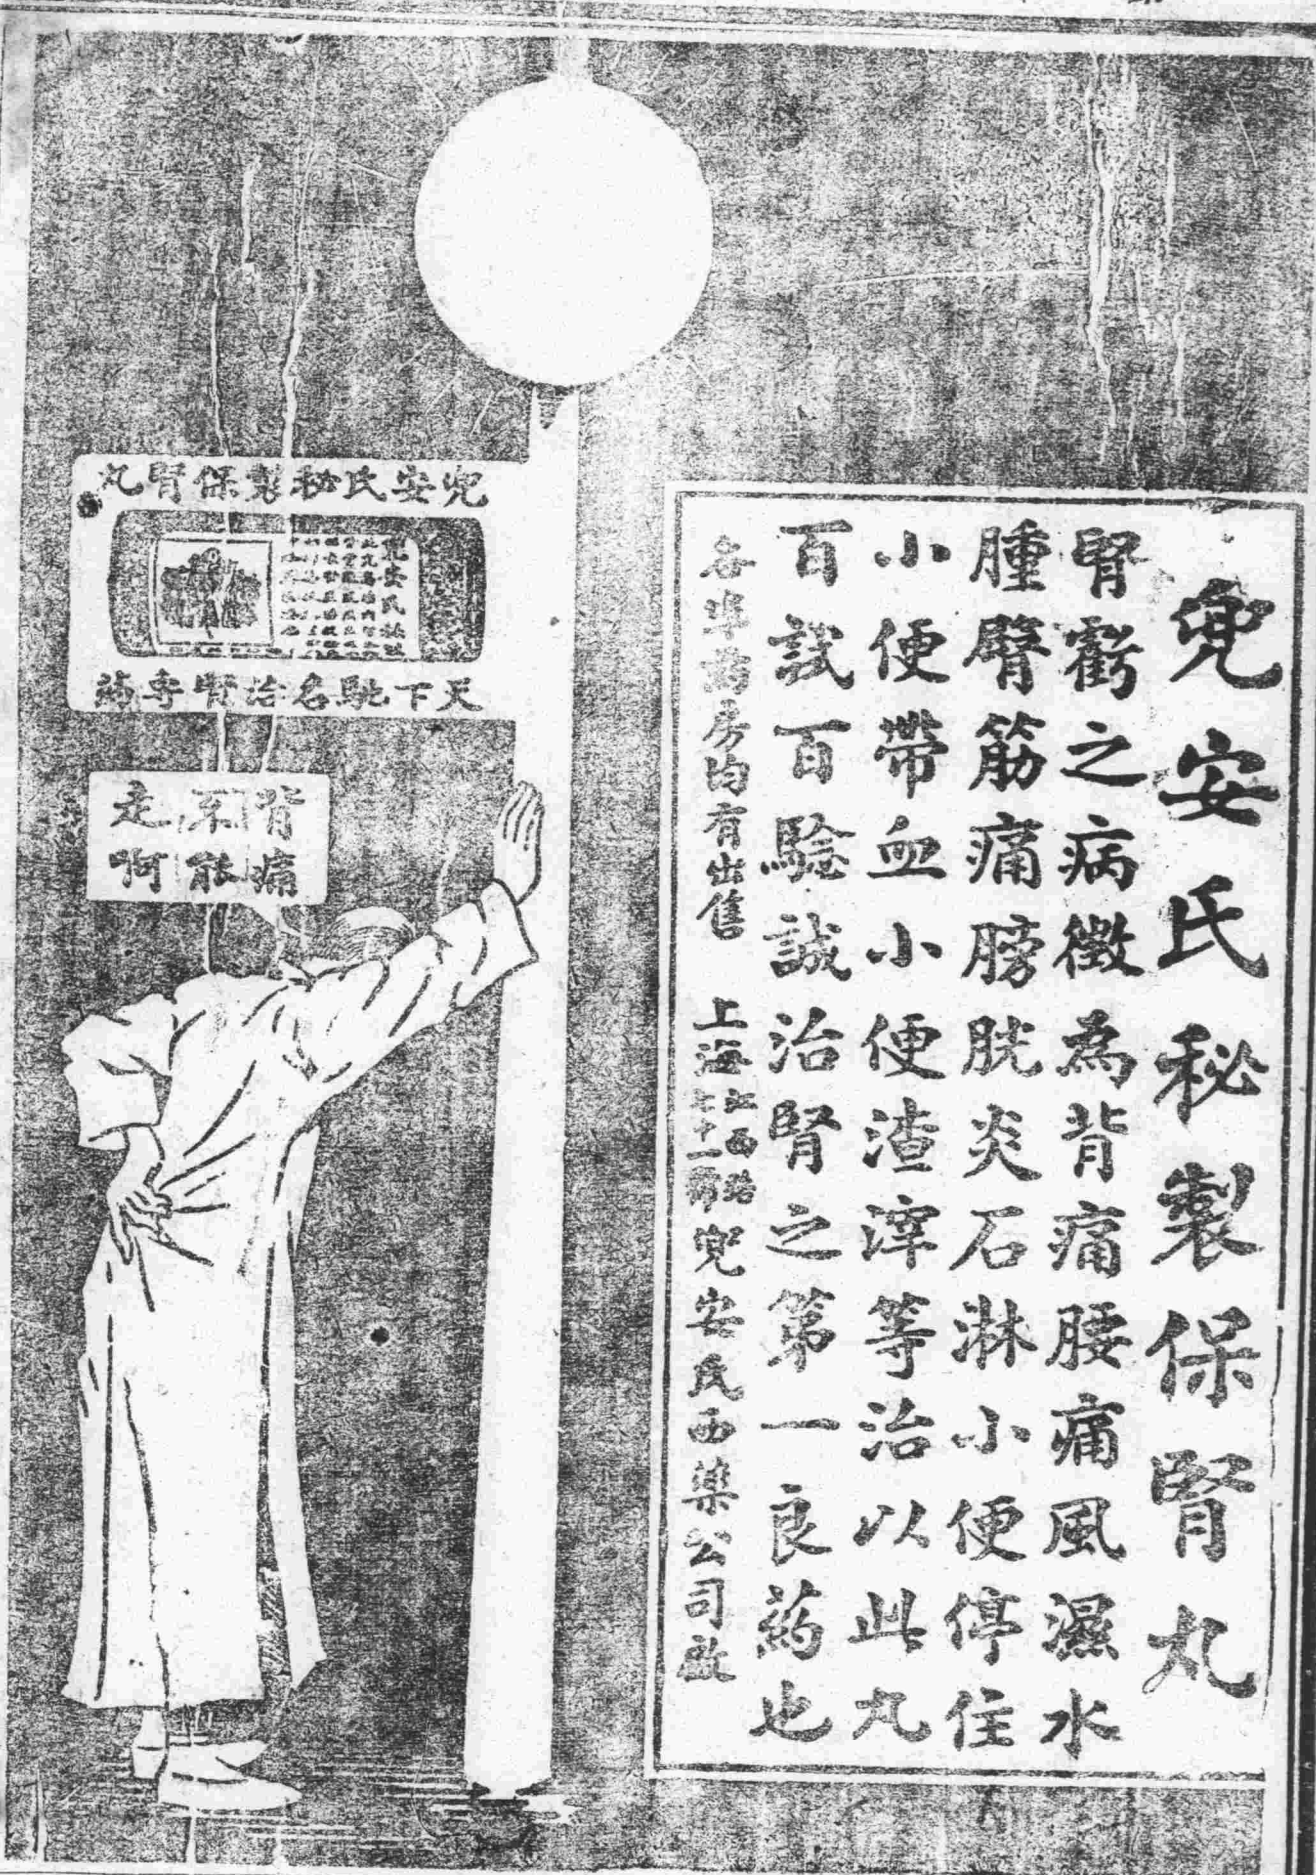 兜安氏秘製保腎丸
腎虧之病徵為背痛腰痛風濕水
腫臂筋痛膀胱炎石淋小便停住
小便帶血小便渣滓等治以此丸
百試百驗誠治腎之第一良葯也
各埠葯房均有出售 上海江西路七十一號兜安氏西藥公司啟
兜安氏秘製保腎丸
兜安氏秘製
天下馳名治腎專葯
背痛
不能
走啊